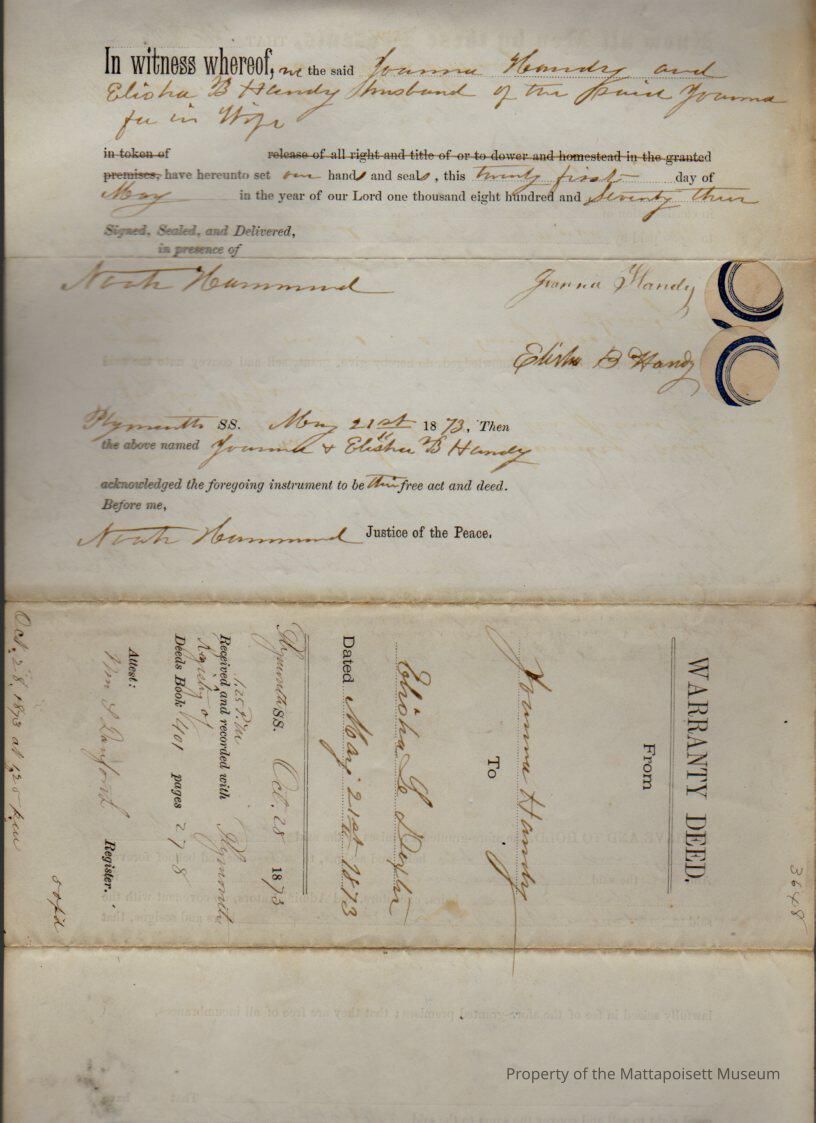 In witness whereof, we the said Joanna Handy and
Elisha B Handy husband of the said Joanna
in
in token of release of all right and title of or to dower and homestead in the granted
premises, have hereunto set our hands and seals, this twenty first day of
May in the year of our Lord one thousand eight hundred and Seventy three
Signed, Sealed, and Delivered,
in presence of
Noah Hammond Joanna Handy
Elisha B Handy
Plymouth SS. May 21st 1873, Then
the above named Joanna & Elisha B Handy
acknowledged the foregoing instrument to be their free act and deed.
Before me,
Noah Hammond Justice of the Peace.
3648
WARRANTY DEED.
From
Joanna Handy
To
Elisha G Dexter
Dated May 21st 1873
Plymouth SS. Oct. 28 1873
1,25 P.M.
Received and recorded with Plymouth
Registry of
Deeds Book 401 pages 278
Attest:
Wm S Danforth Register.
Oct. 28, 1873 at 1,25 P.M.
Property of the Mattapoisett Museum